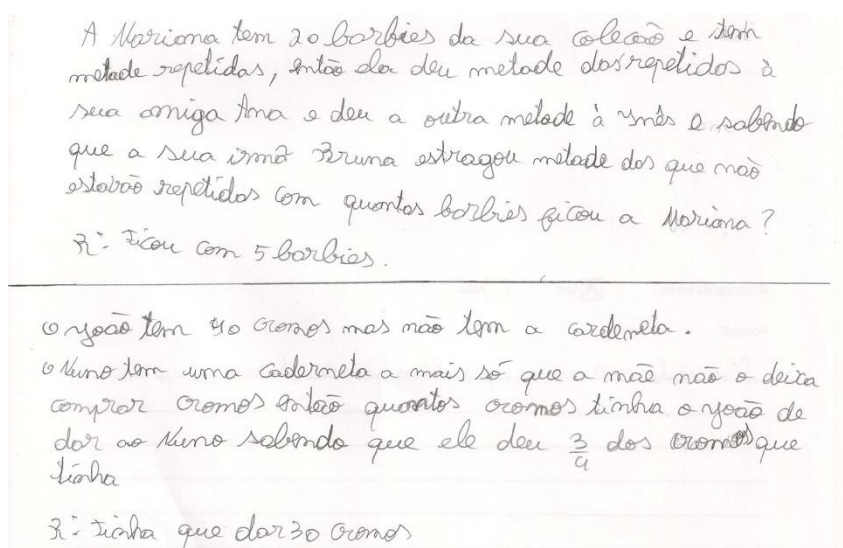 A Mariana tem 20 barbies da sua coleção e tem
metade repetidas, então ela deu metade das repetidos à
sua amiga Ana e deu a outra metade à Ynês e sabendo
que a sua irmã Bruna estragou metade das que não
estavão repetidas com quantas barbies ficou a Mariana?
R: Ficou com 5 barbies.
O João tem 40 cromos mas não tem a cardeneta.
O Nuno tem uma caderneta a mais só que a mãe não o deixa
comprar cromos então quantos cromos tinha o João de
dar ao Nuno sabendo que ele deu 3/4 dos cromos que
tinha
R: Tinha que dar 30 cromos